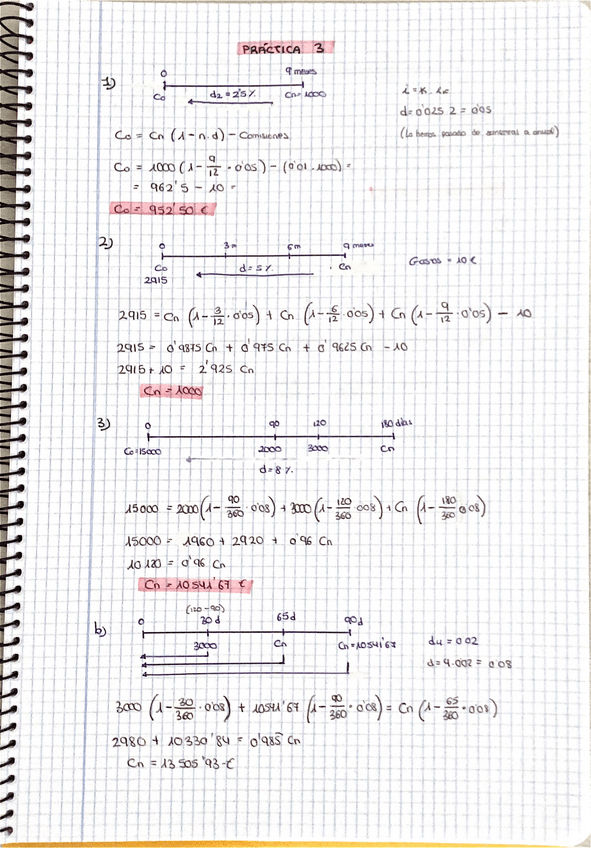 PRÁCTICA 3
1)
0 9 meses
Co d2 = 2'5% Cn = 1000
i = k . ik
d = 0'025 2 = 0'05
(Lo hemos pasado de semestral a anual)
Co = Cn (1 - n.d) - Comisiones
Co = 1000 (1 - 9/12 · 0'05) - (0'01 . 1000) =
= 962'5 - 10 =
Co = 952'50 €
2)
0 3m 6m 9 meses
Co d = 5% . Cn
2915
Gastos = 10 €
2915 = Cn (1 - 3/12 · 0'05) + Cn (1 - 6/12 · 0'05) + Cn (1 - 9/12 · 0'05) - 10
2915 = 0'9875 Cn + 0'975 Cn + 0'9625 Cn - 10
2915 + 10 = 2'925 Cn
Cn = 1000
3)
0 90 120 180 días
Co = 15000 2000 3000 Cn
d = 8%
15000 = 2000 (1 - 90/360 · 0'08) + 3000 (1 - 120/360 0'08) + Cn (1 - 180/360 0'08)
15000 = 1960 + 2920 + 0'96 Cn
10120 = 0'96 Cn
Cn = 10541'67 €
b)
(120-90)
0 30d 65d 90d
3000 Cn Cn = 10541'67
d4 = 0'02
d = 4·0'02 = 0'08
3000 (1 - 30/360 · 0'08) + 10541'67 (1 - 90/360 · 0'08) = Cn (1 - 65/360 · 0'08)
2980 + 10330'84 = 0'985 Cn
Cn = 13505'93 €